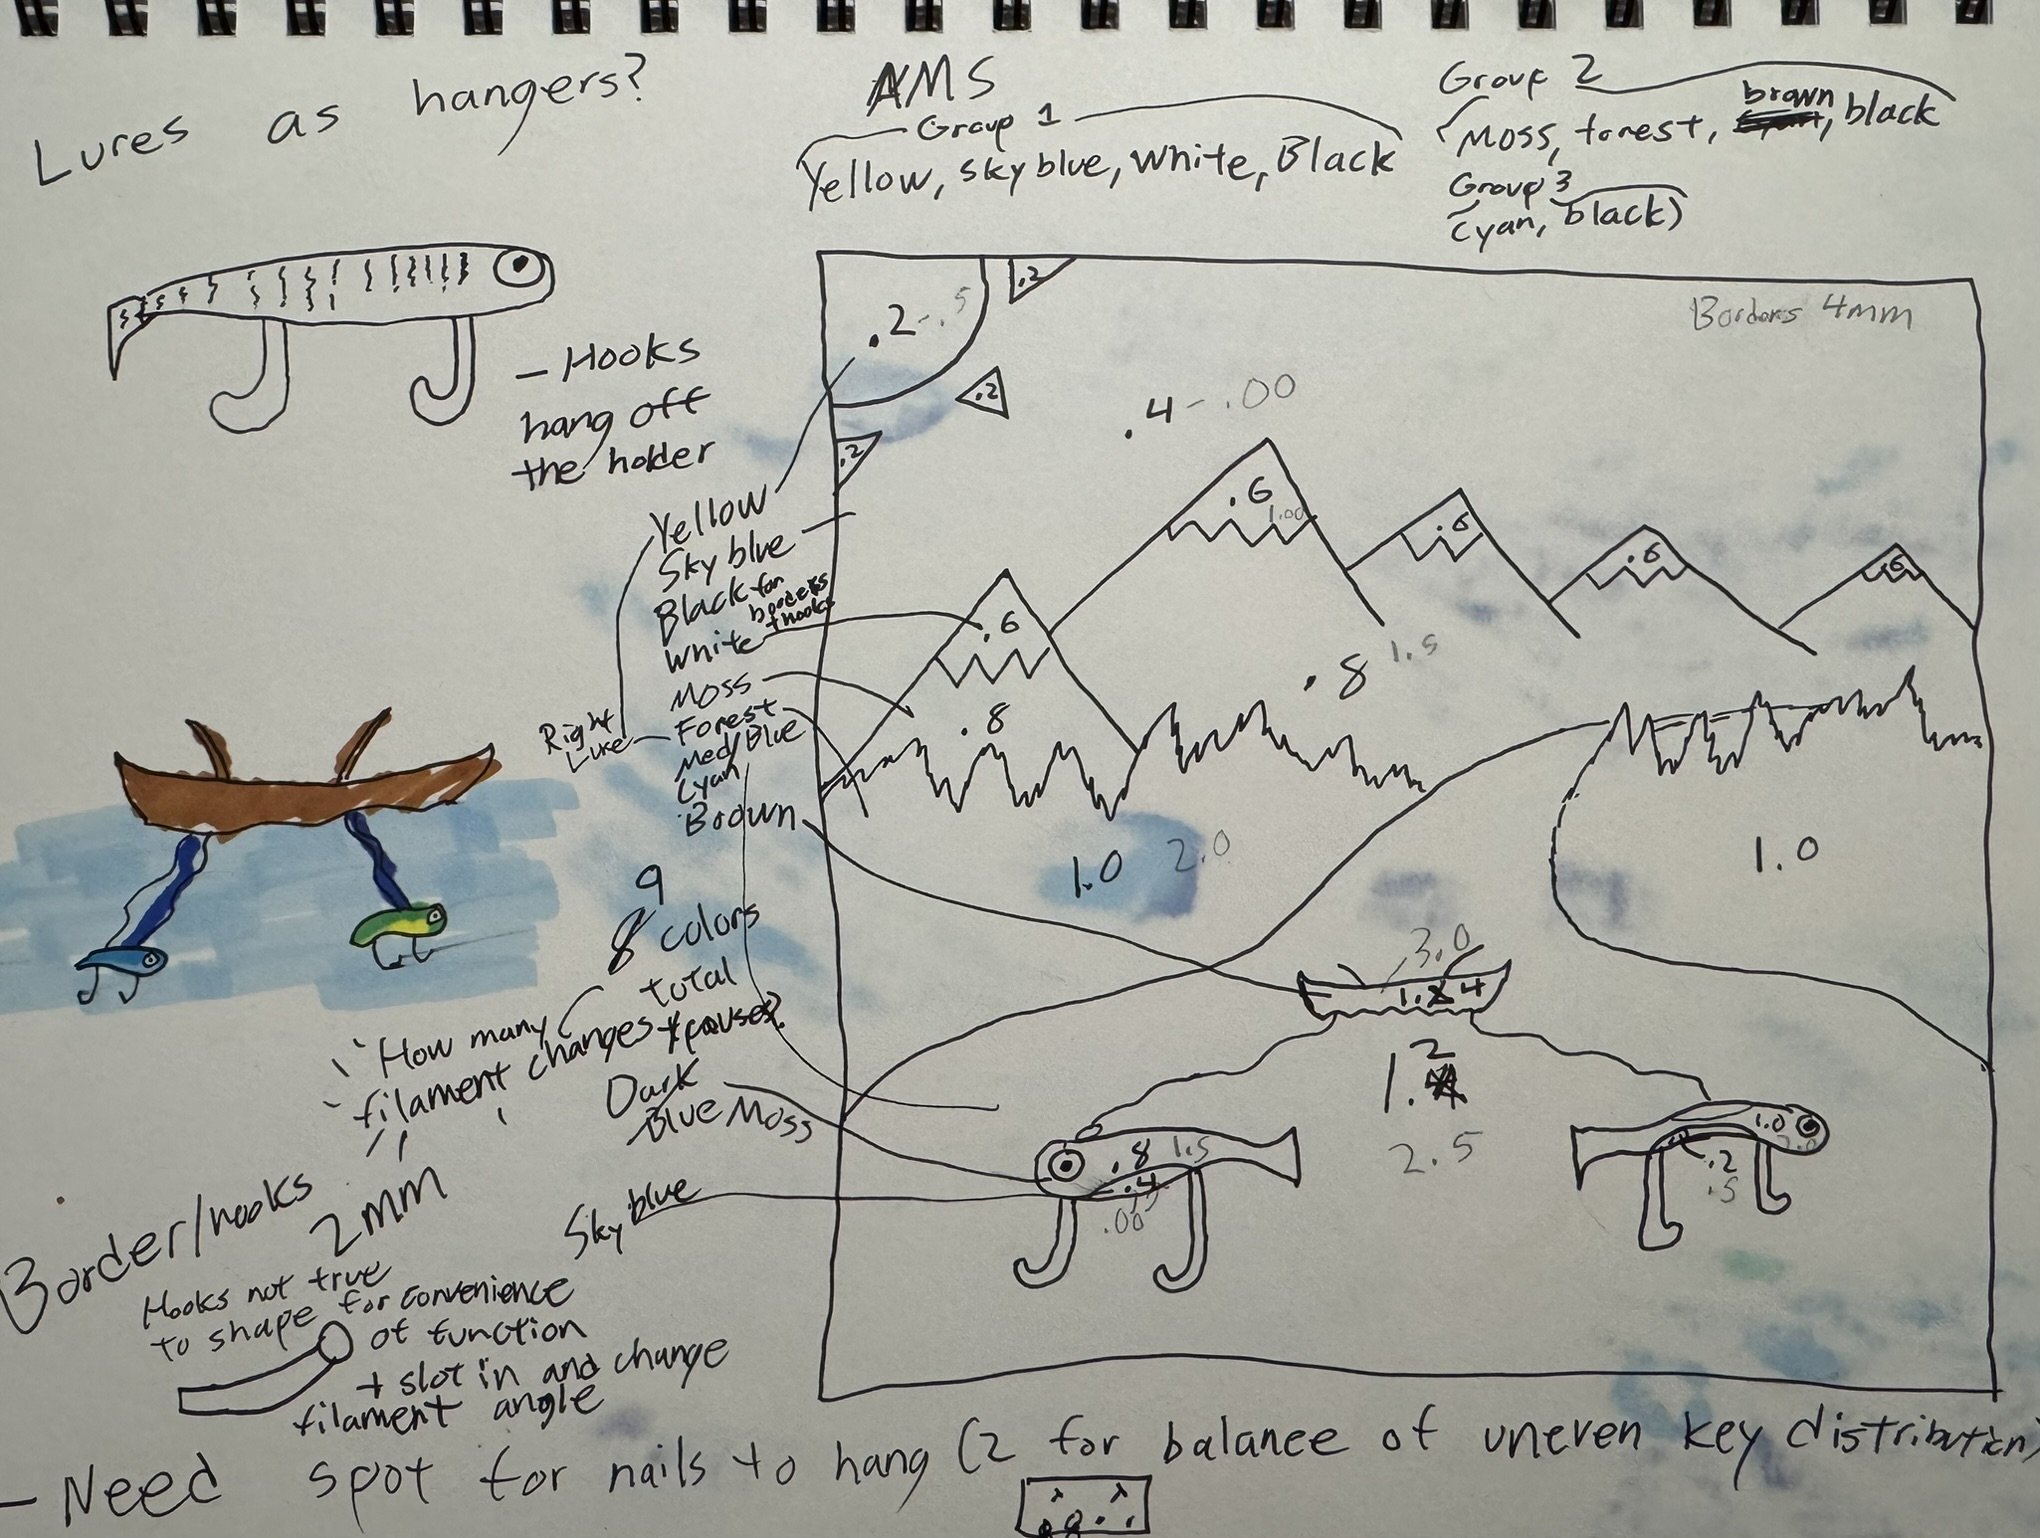 Lures as hangers?
AMS
Group 1
Yellow, sky blue, White, Black
Group 2
Moss, forest, brown, black
Group 3
Cyan, black)
- Hooks
hang off
the holder
Borders 4mm
.2-.5
.2
.2
.2
.4-.00
.6
1.00
.6
.6
.6
.6
.8
.8 1.5
1.0 2.0
1.0
3.0
1.4
1.2
2.5
.8 1.5
.4
.00
1.0
2.0
.2
.5
Yellow
Sky blue
Black for
borders
+ hooks
White
Moss
Forest
Med/Blue
Cyan
Brown
Right
Lure
9
8 colors
total
"How many
filament changes + pauses?
Dark
Blue Moss
Sky blue
Border/hooks
2mm
Hooks not true
to shape for convenience
of function
+ slot in and change
filament angle
- Need spot for nails to hang (2 for balance of uneven key distribution)